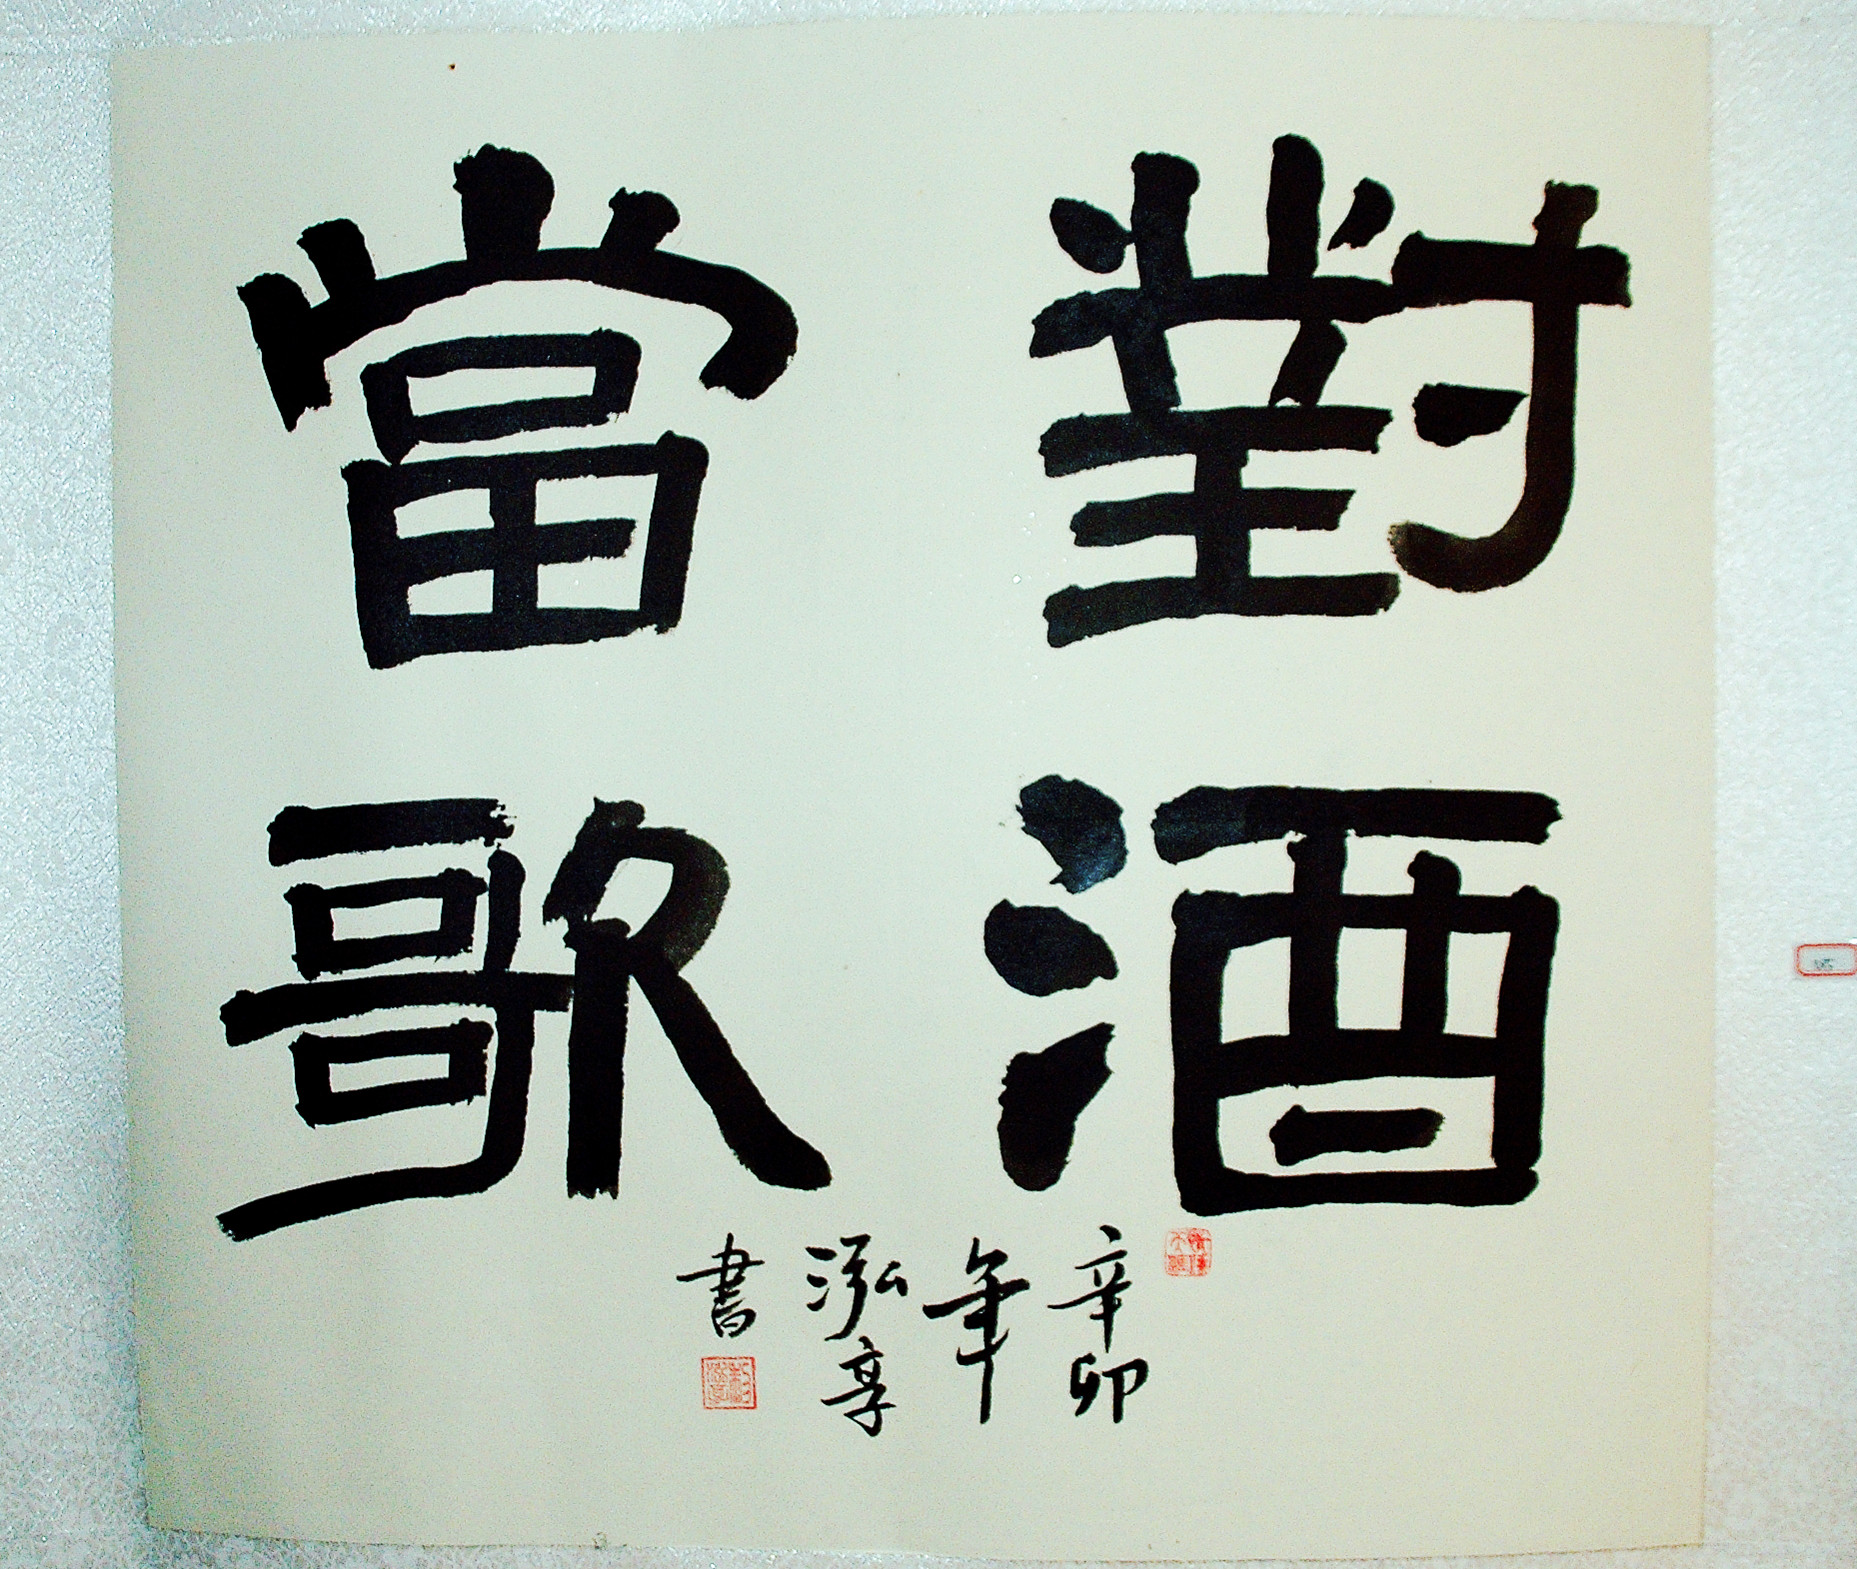 對酒
當歌
辛卯
年
泓享
書